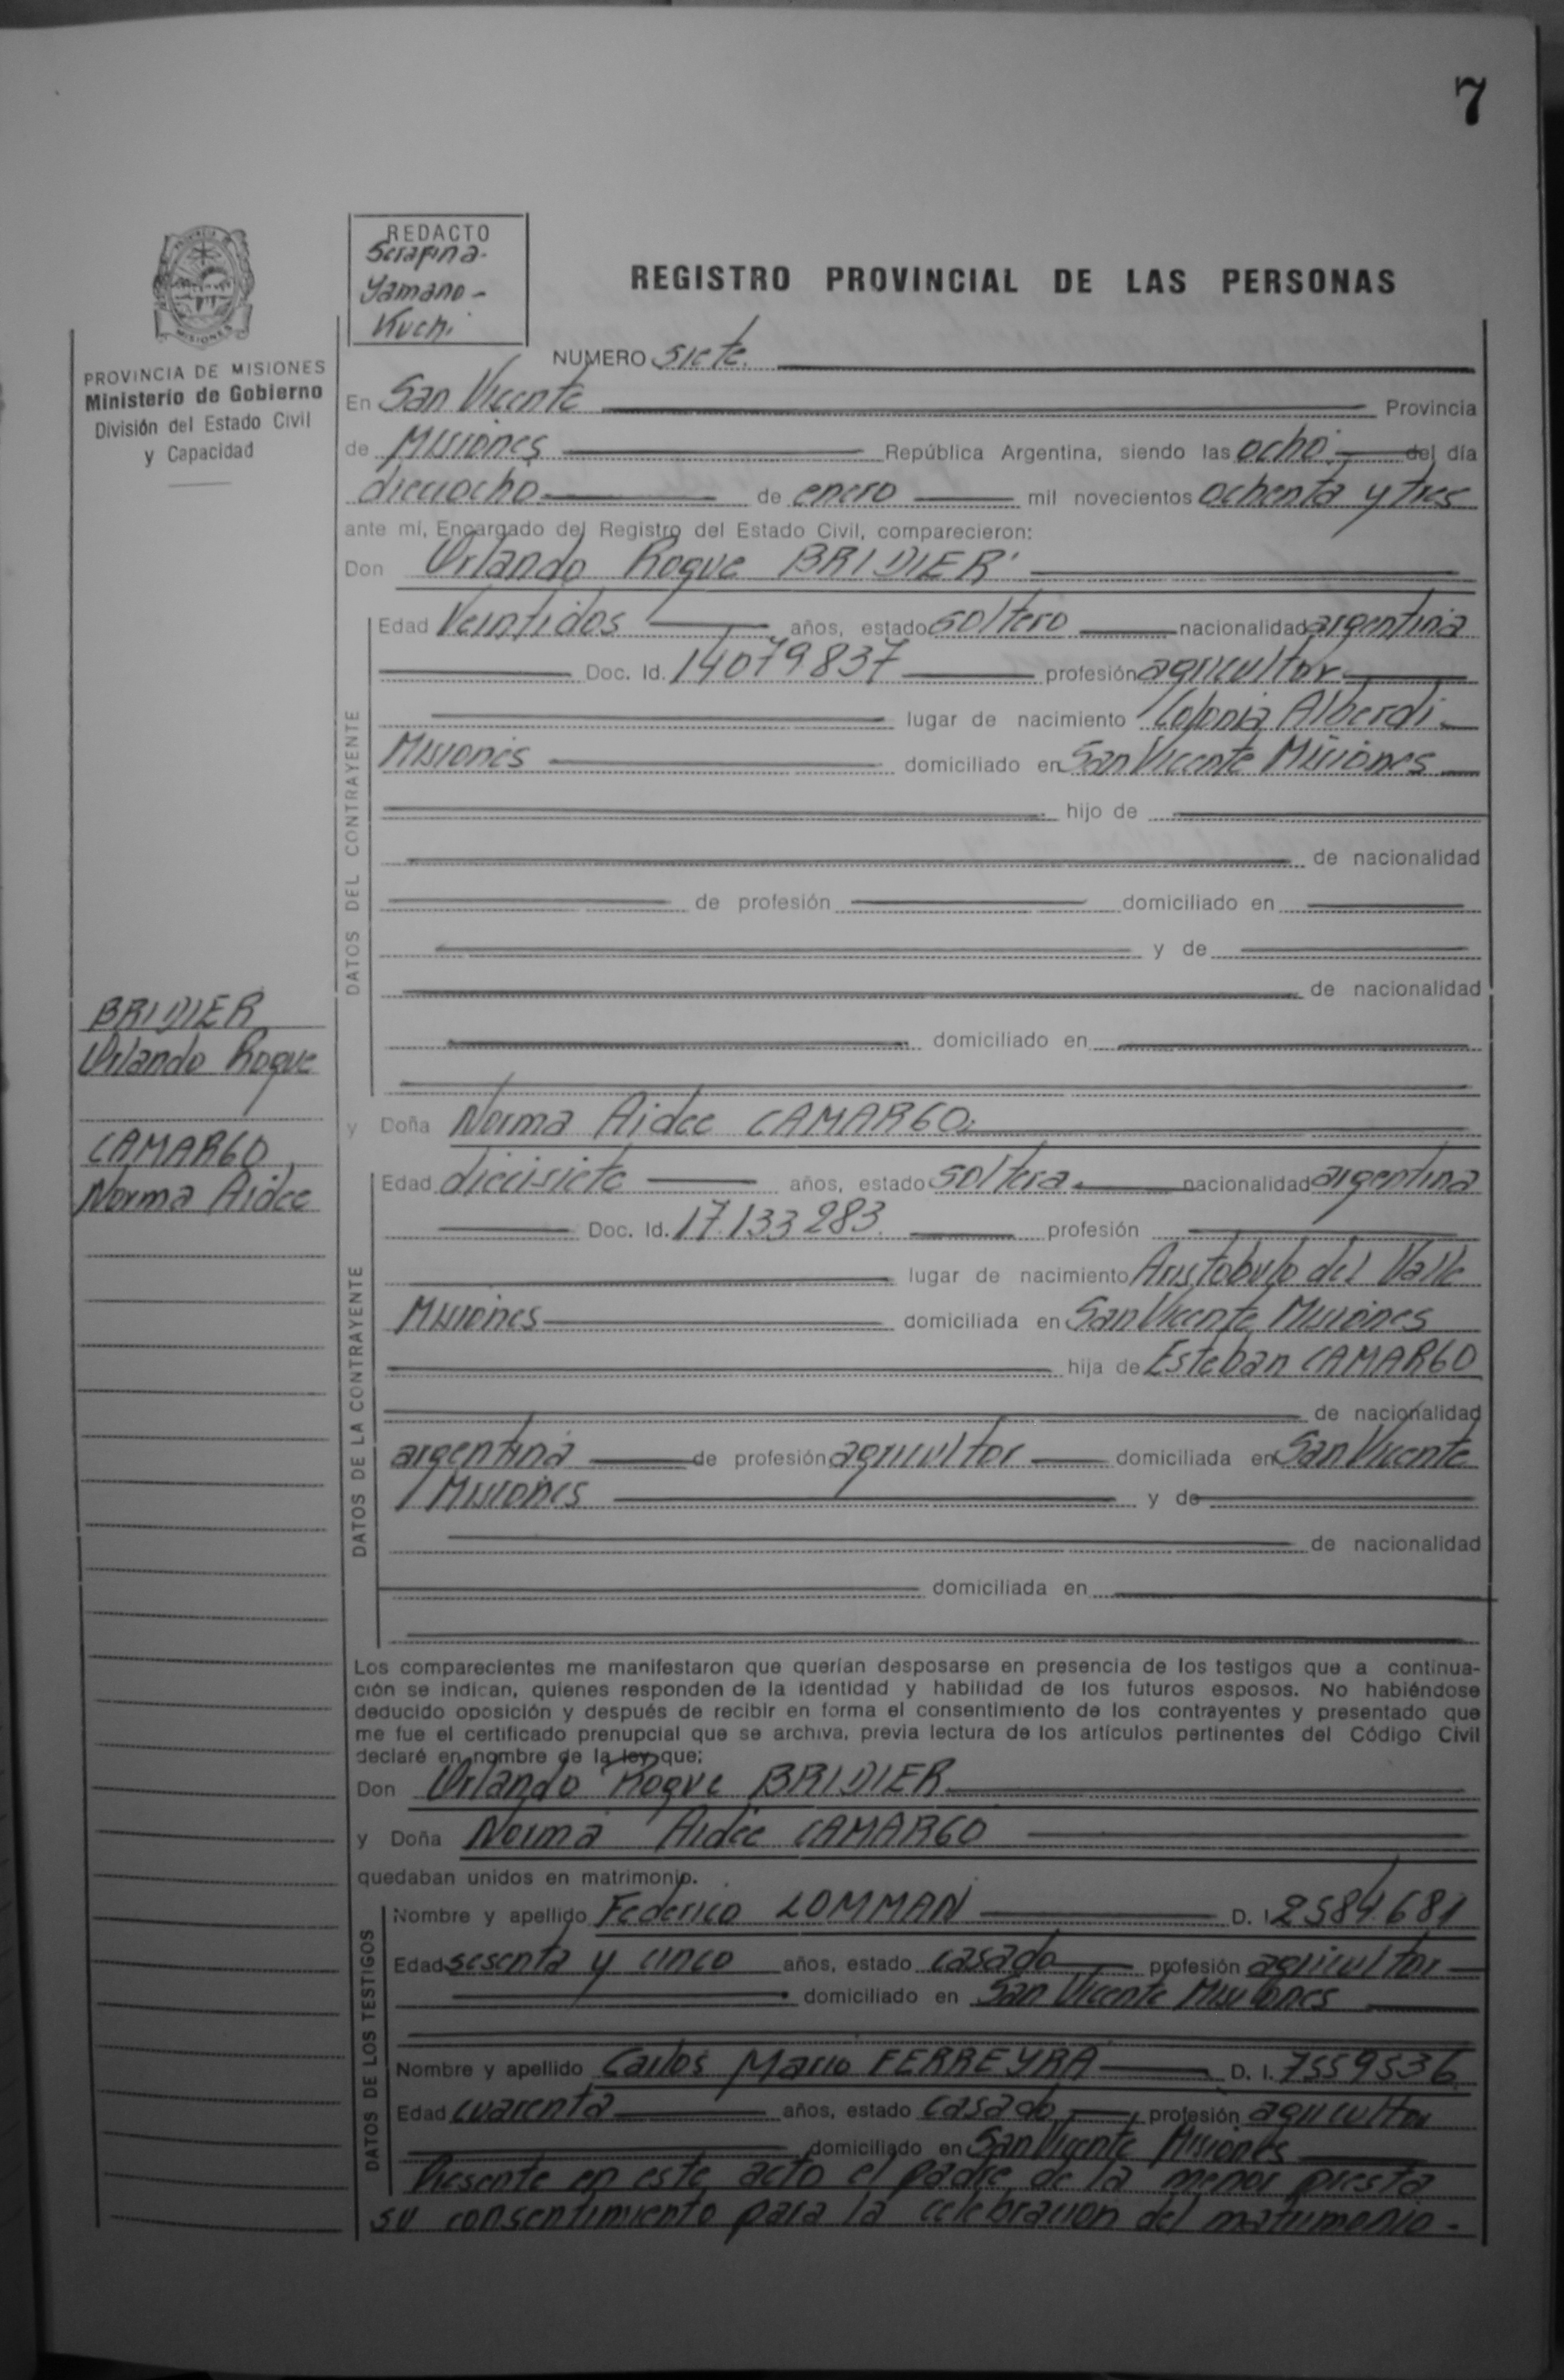 7
REDACTO
Serafina
Yamano-
Kuchi
REGISTRO PROVINCIAL DE LAS PERSONAS
MISIONES
PROVINCIA DE MISIONES
Ministerio de Gobierno
División del Estado Civil
y Capacidad
NUMERO siete.
En San Vicente Provincia
de Misiones República Argentina, siendo las ocho del día
dieciocho de enero mil novecientos ochenta y tres
ante mí, Encargado del Registro del Estado Civil, comparecieron:
Don Orlando Roque BRIDIER
DATOS DEL CONTRAYENTE
Edad Veintidos años, estado soltero nacionalidad argentina
Doc. Id. 14079837 profesión agricultor
lugar de nacimiento Colonia Alberdi
Misiones domiciliado en San Vicente Misiones
hijo de
de nacionalidad
de profesión domiciliado en
y de
de nacionalidad
domiciliado en
BRIDIER
Orlando Roque
CAMARGO
Norma Aidee
y Doña Norma Aidee CAMARGO
DATOS DE LA CONTRAYENTE
Edad diecisiete años, estado soltera nacionalidad argentina
Doc. Id. 17.133283. profesión
lugar de nacimiento Aristobulo del Valle
Misiones domiciliada en San Vicente Misiones
hija de Esteban CAMARGO
de nacionalidad
argentina de profesión agricultor domiciliada en San Vicente
Misiones y de
de nacionalidad
domiciliada en
Los comparecientes me manifestaron que querían desposarse en presencia de los testigos que a continua-
ción se indican, quienes responden de la identidad y habilidad de los futuros esposos. No habiéndose
deducido oposición y después de recibir en forma el consentimiento de los contrayentes y presentado que
me fue el certificado prenupcial que se archiva, previa lectura de los artículos pertinentes del Código Civil
declaré en nombre de la ley que:
Don Orlando Roque BRIDIER
y Doña Norma Aidee CAMARGO
quedaban unidos en matrimonio.
DATOS DE LOS TESTIGOS
Nombre y apellido Federico LOMMAN D. I. 2584681
Edad sesenta y cinco años, estado casado profesión agricultor
domiciliado en San Vicente Misiones
Nombre y apellido Carlos Mario FERREYRA D. I. 7559536
Edad cuarenta años, estado casado profesión agricultor
domiciliado en San Vicente Misiones
Presente en este acto el padre de la menor presta
su consentimiento para la celebracion del matrimonio.-